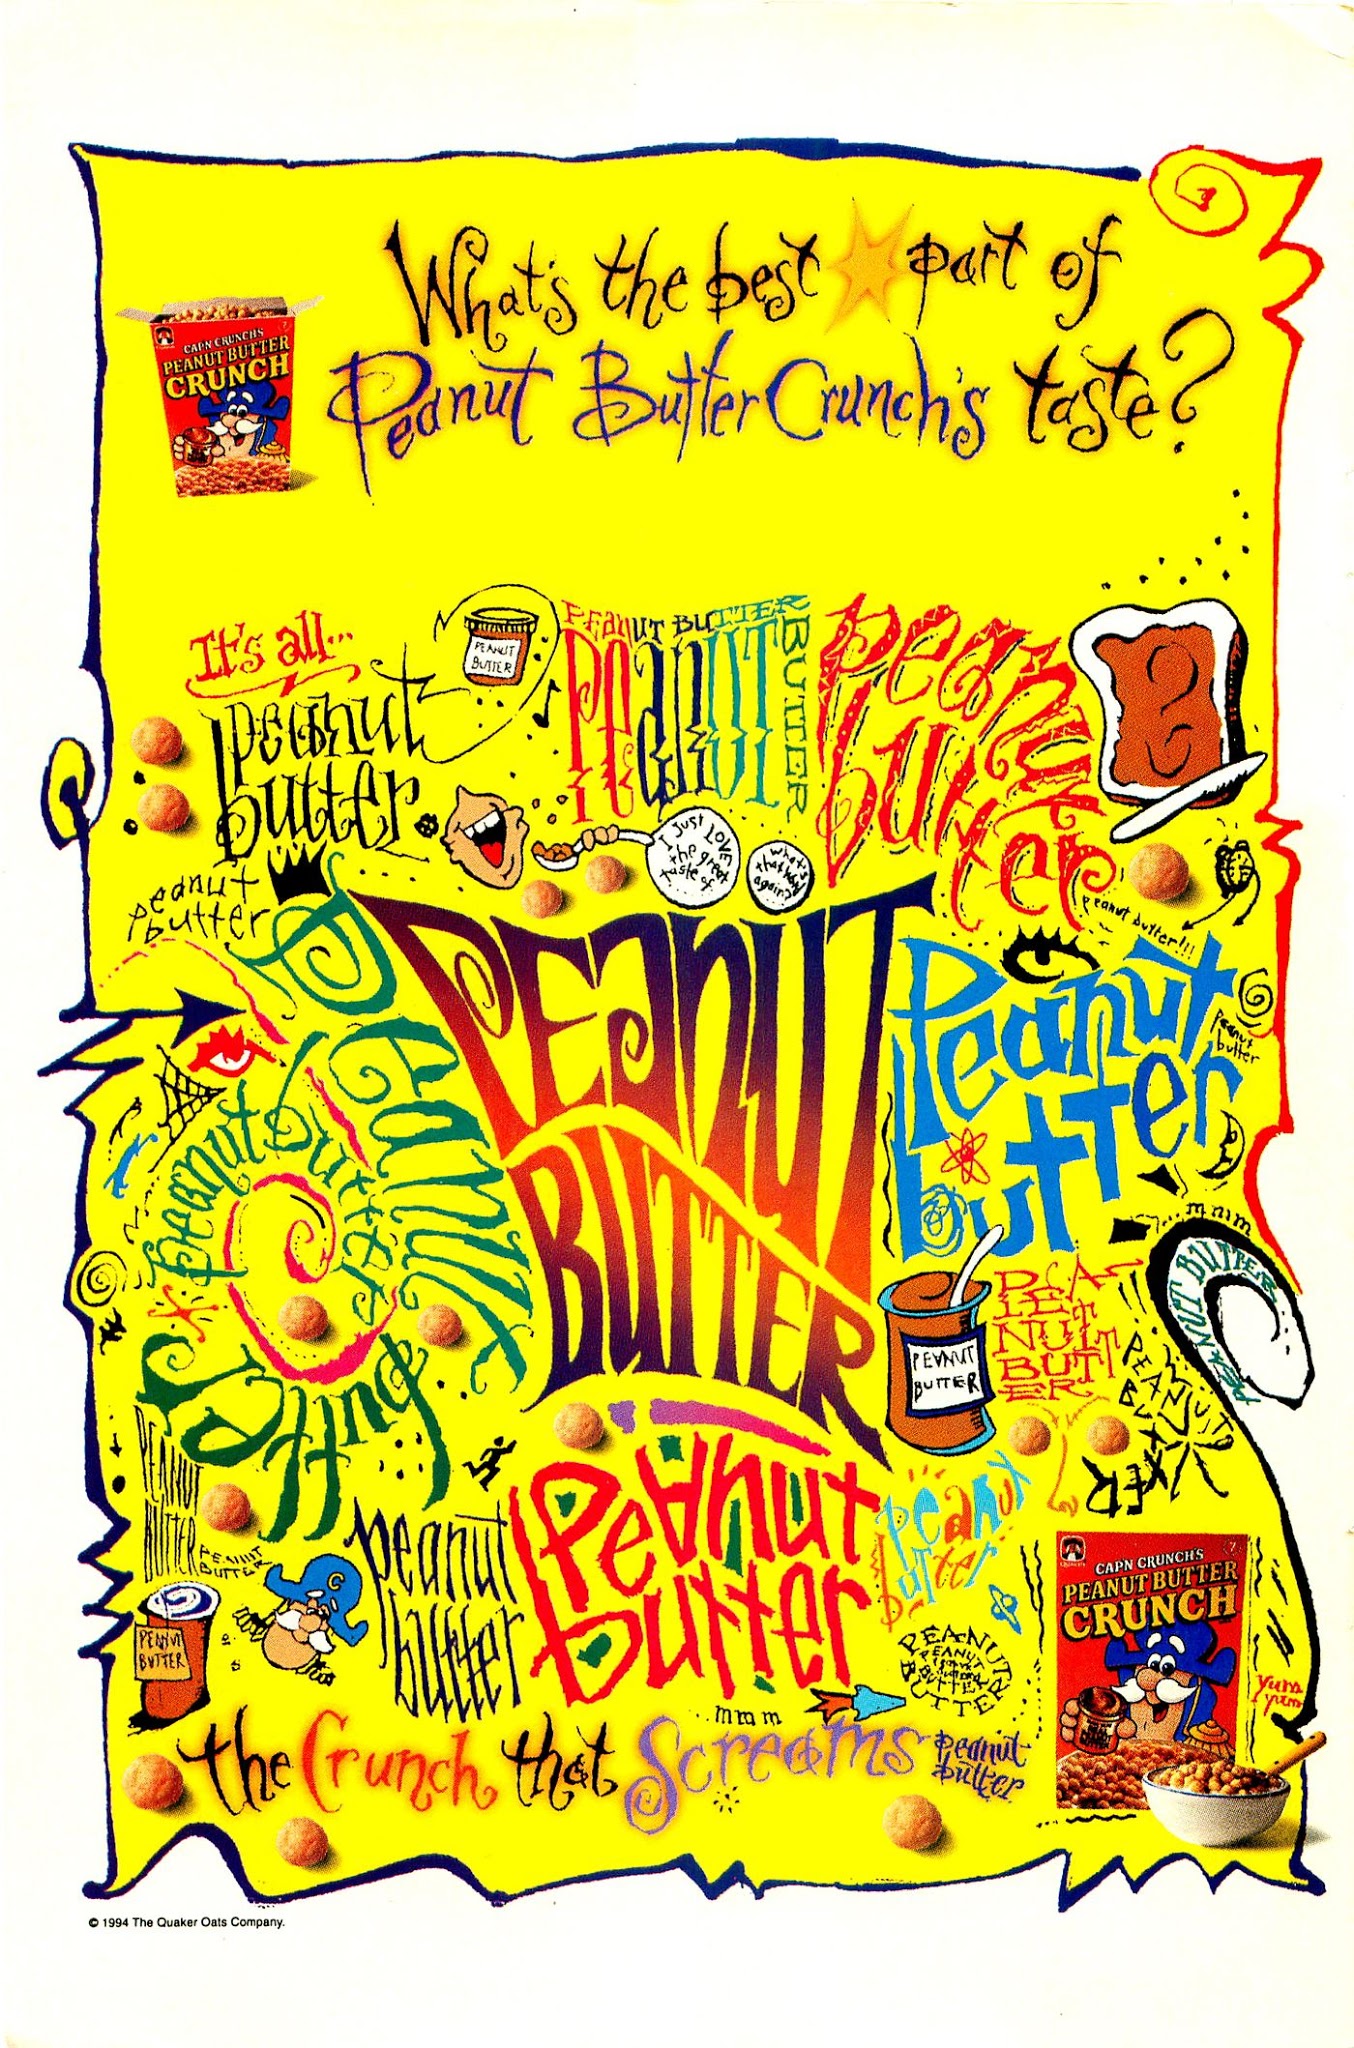 What's the best part of
Peanut Butter Crunch's taste?
CAP'N CRUNCH'S
PEANUT BUTTER
CRUNCH
It's all...
peanut
butter
PEANUT
BUTTER
PEANUT BUTTER
PEANUT
BUTTER
peanut
butter
I JUST LOVE
the great
taste of...
what's
that word
again?
peanut
butter
peanut butter!!!
PEANUT
BUTTER
Peanut
butter
peanut
butter
Peanut
butter
peanut butter
mmm
PEANUT BUTTER
PEANUT
BUTTER
PEANUT
BUTTER
PEANUT
BUTTER
PEANUT
BUTTER
peanut
butter
Peanut
butter
peanut
butter
PEANUT
BUTTER
PEANUT
BUTTER
C
PEANUT
BUTTER
...mmm
the Crunch that Screams peanut
butter
CAP'N CRUNCH'S
PEANUT BUTTER
CRUNCH
yum
yum
© 1994 The Quaker Oats Company.